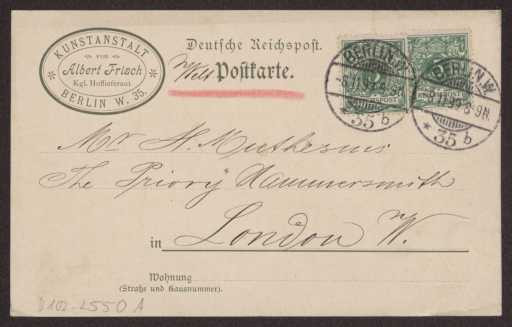 KUNSTANSTALT
VON
Albert Frisch
Kgl. Hoflieferant
BERLIN W. 35.
Deutsche Reichspost.
Welt Postkarte.
BERLIN W.
35 b
BERLIN W.
* 35 b
Mr H. Muthesius
The Priory Hammersmith
in London W.
Wohnung
(Straße und Hausnummer).
D 102-2550 A